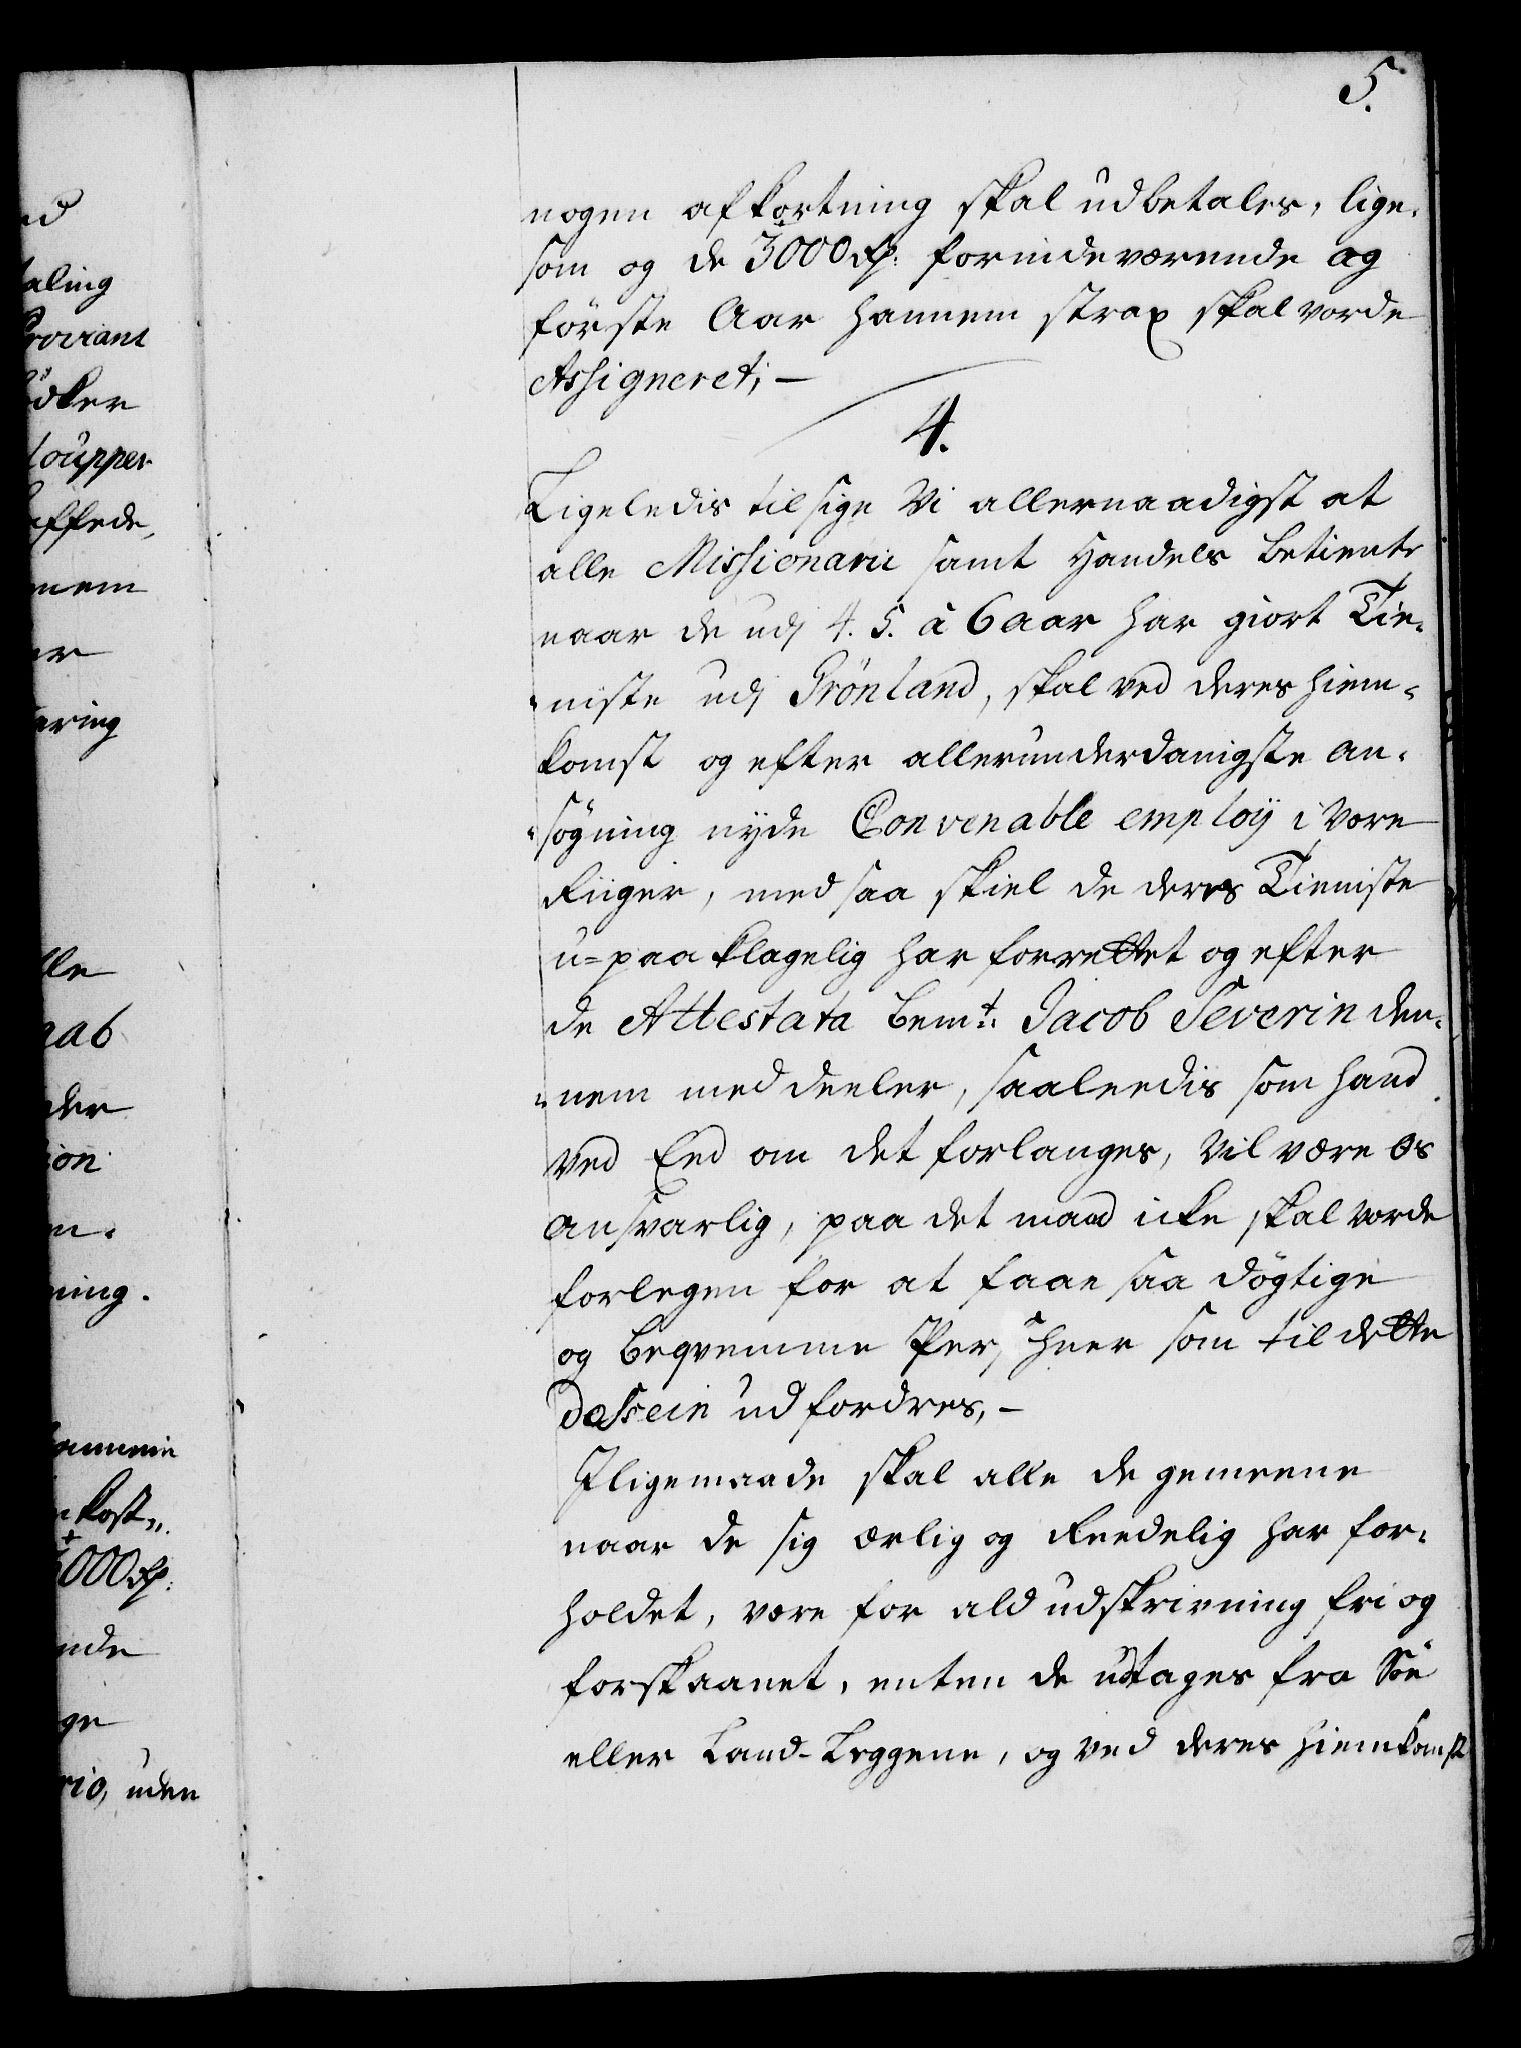 5.
nogen afkortning skal udbetales, lige-
som og de 3000 Rd: forindeværende og
förste Aar hannem strax skal vorde
Assigneret; —
4.
Ligeledis tilsige Vi allernaadigst at
alle Missionarii samt Handels Betiente
naar de udj 4. 5. à 6 aar har giort Tie-
niste udj Grönland, skal ved deres hiem-
komst og efter allerunderdanigste an-
søgning nyde Convenable employ i Vore
Riiger, med saa skiel de deres Tieniste
u-paaklagelig har forrettet og efter
de Attestata bemt: Jacob Severin den-
nem meddeeler, saaleedis som hand
ved Eed om det forlanges, vil være os
ansvarlig, paa det mand icke skal vorde
forlegen for at faae saa dögtige
og beqvemme Persohner som til dette
dessein udfordres, —
Jligemaade skal alle de gemeene
naar de sig ærlig og Reedelig har for-
holdet, være for ald udskrivning fri og
forskaanet, enten de udtages fra Söe
eller Land-Leggene, og ved deres hiemkomst
aling
Proviant
ödker
affede,
nem
er
lle
der
ion
ning.
kost„
000 Rd:
ende
ge
rio, uden